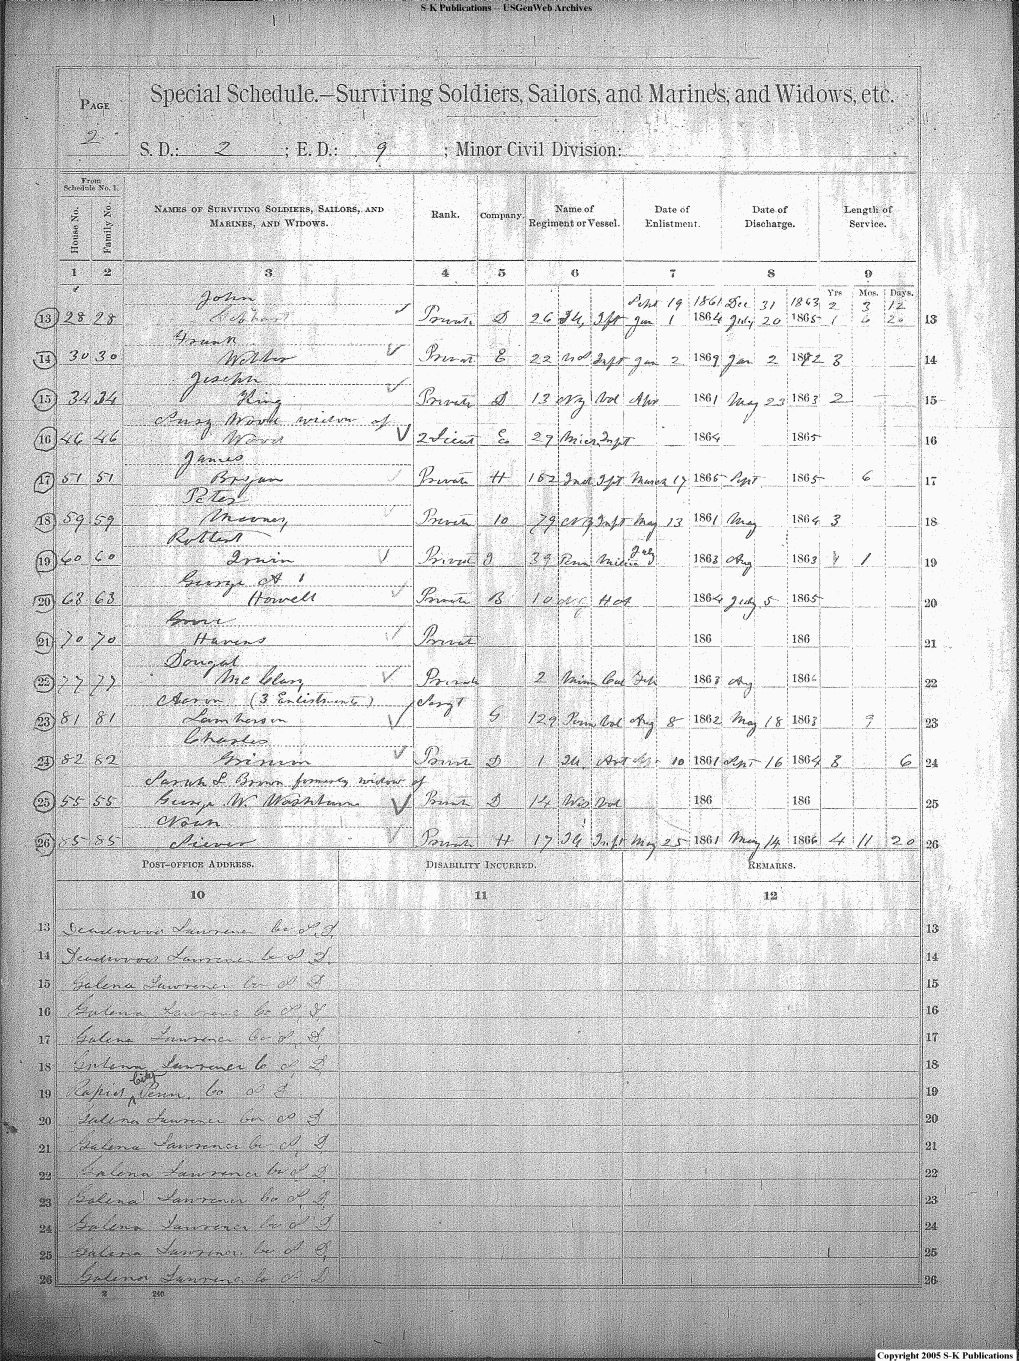 S-K Publications – USGenWeb Archives
PAGE
2
Special Schedule.—Surviving Soldiers, Sailors, and Marines, and Widows, etc.
S. D.: 2 ; E. D.: 9 ; Minor Civil Division:
From Schedule No. 1.
House No.
Family No.
NAMES OF SURVIVING SOLDIERS, SAILORS, AND MARINES, AND WIDOWS.
Rank.
Company.
Name of Regiment or Vessel.
Date of Enlistment.
Date of Discharge.
Length of Service.
1 2 3 4 5 6 7 8 9
Yrs Mos. Days.
John Sept 19 1861 Dec 31 1863 2 3 12
13 28 28 Private D 26 Ill, Ift Jan 1 1864 July 20 1865 1 6 20 13
Frank
14 30 30 Private E 22 Inft Jan 2 Jan 2 3 14
Joseph
15 34 34 King Private D 13 Vol Apr 1861 May 23 1863 2 15
Wood widow of
16 46 46 Wood 2 Lieut 27 Inft 1864 1865 16
James
17 51 51 Bryan Private H 152 Ind Ift March 17 1865 Sept 1865 6 17
Peter
18 59 59 Private 10 79 Inft May 13 1861 May 1864 3 18
19 60 60 Irwin Private 39 Penn July 1863 Aug 1863 1 19
George A
20 63 63 Howell Private B 10 1864 July 5 1865 20
21 70 70 Havens Private 186 186 21
Dougal
22 77 77 Mc Clary Private 2 Minn Cal Feb 1863 Aug 186 22
Aaron (3 Enlistments) Sargt
23 81 81 Lamherson G 129 Penn Vol Aug 8 1862 May 18 1863 9 23
Charles
24 82 82 Private D 1 Ill, Art 10 1861 Sept 16 1864 3 6 24
Sarah L Brown formerly widow of
25 55 55 George W. Washburne Private D 14 Wis Vol 186 186 25
Noah
26 85 85 Siever Private H 17 Ill Inft May 25 1861 May 14 1866 4 11 20 26
POST-OFFICE ADDRESS. DISABILITY INCURRED. REMARKS.
10 11 12
13 Deadwood Lawrence Co S. D 13
14 Deadwood Lawrence Co S D. 14
15 Galena Lawrence Co S D 15
16 Galena Lawrence Co S D 16
17 Galena Lawrence Co S. D 17
18 Galena Lawrence Co S D 18
19 Rapid City Penn. Co S D 19
20 Galena Lawrence Co S D 20
21 Galena Lawrence Co S D 21
22 Galena Lawrence Co S D 22
23 Galena Lawrence Co S. D. 23
24 Galena Lawrence Co S D 24
25 Galena Lawrence Co S D. 25
26 Galena Lawrence Co S D 26
240
Copyright 2005 S-K Publications